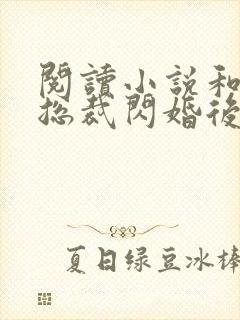 閱讀小説和
總裁閃婚後
夏日绿豆冰棒